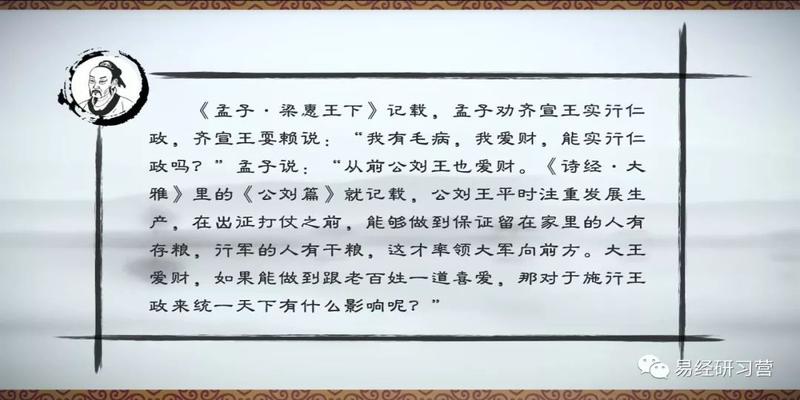 《孟子·梁惠王下》记载，孟子劝齐宣王实行仁
政，齐宣王耍赖说：“我有毛病，我爱财，能实行仁
政吗？”孟子说：“从前公刘王也爱财。《诗经·大
雅》里的《公刘篇》就记载，公刘王平时注重发展生
产，在出征打仗之前，能够做到保证留在家里的人有
存粮，行军的人有干粮，这才率领大军向前方。大王
爱财，如果能做到跟老百姓一道喜爱，那对于施行王
政来统一天下有什么影响呢？”
易经研习营